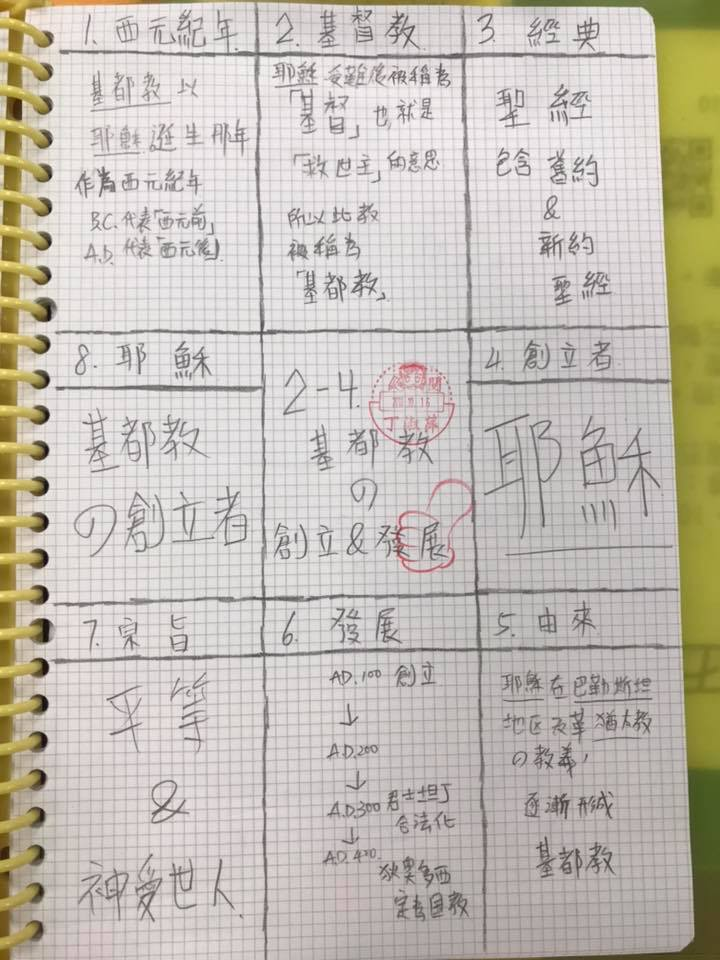 1. 西元紀年
基都教以
耶穌誕生那年
作為西元紀年
B.C. 代表「西元前」
A.D. 代表「西元後」
2. 基督教
耶穌受難後被稱為
「基督」也就是
「救世主」的意思
所以此教
被稱為
「基都教」
3. 經典
聖經
包含舊約
&
新約
聖經
8. 耶穌
基都教
の創立者
2-4.
基都教
の
創立&發展
4. 創立者
耶穌
7. 宗旨
平等
&
神愛世人
6. 發展
AD.100 創立
↓
A.D.200
↓
A.D.300 君士坦丁
合法化
↓
A.D.400.
狄奧多西
定為國教
5. 由來
耶穌在巴勒斯坦
地区改革猶太教
の教義,
逐漸形成
基都教